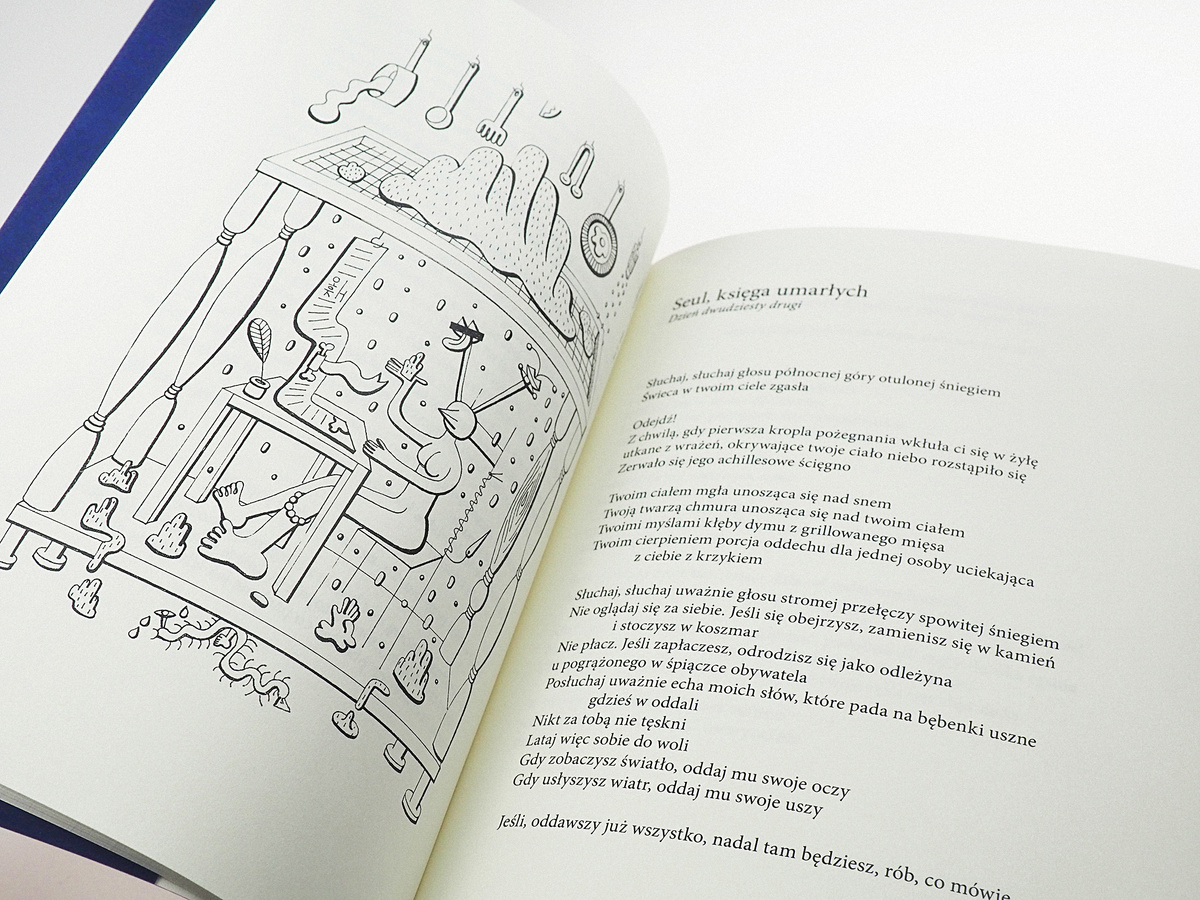 Seul, księga umarłych
Dzień dwudziesty drugi
Słuchaj, słuchaj głosu północnej góry otulonej śniegiem
Świeca w twoim ciele zgasła
Odejdź!
Z chwilą, gdy pierwsza kropla pożegnania wkłuła ci się w żyłę
utkane z wrażeń, okrywające twoje ciało niebo rozstąpiło się
Zerwało się jego achillesowe ścięgno
Twoim ciałem mgła unosząca się nad snem
Twoją twarzą chmura unosząca się nad twoim ciałem
Twoimi myślami kłęby dymu z grillowanego mięsa
Twoim cierpieniem porcja oddechu dla jednej osoby uciekająca
z ciebie z krzykiem
Słuchaj, słuchaj uważnie głosu stromej przełęczy spowitej śniegiem
Nie oglądaj się za siebie. Jeśli się obejrzysz, zamienisz się w kamień
i stoczysz w koszmar
Nie płacz. Jeśli zapłaczesz, odrodzisz się jako odleżyna
u pogrążonego w śpiączce obywatela
Posłuchaj uważnie echa moich słów, które pada na bębenki uszne
gdzieś w oddali
Nikt za tobą nie tęskni
Lataj więc sobie do woli
Gdy zobaczysz światło, oddaj mu swoje oczy
Gdy usłyszysz wiatr, oddaj mu swoje uszy
Jeśli, oddawszy już wszystko, nadal tam będziesz, rób, co mówię